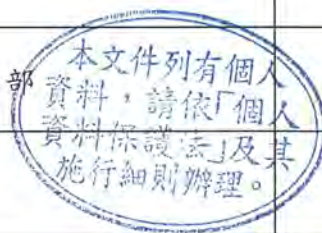 部
本文件列有個人
資料，請依「個人
資料保護法」及其
施行細則辦理。